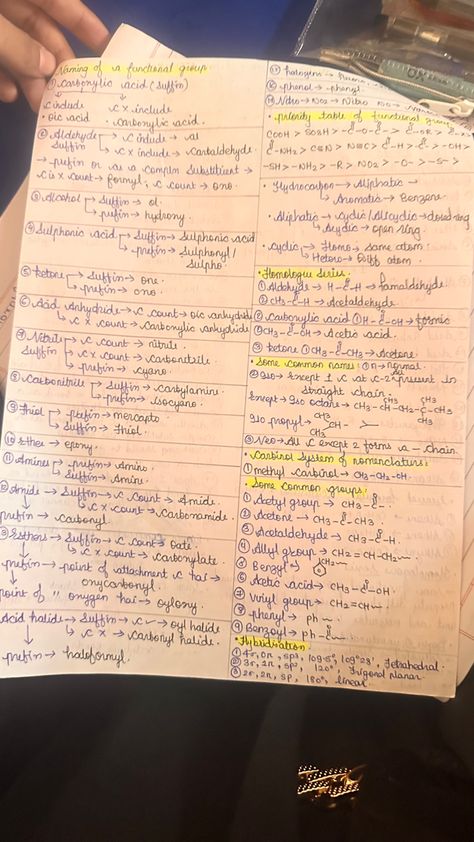 Naming of a functional group
① Carboxylic acid (Suffix)
C include C x include
• oic acid • carboxylic acid.
② Aldehyde → C include → al
Suffix C x include → Carbaldehyde
→ prefix or as a complex Substituent →
C is x count → formyl, C count → oxo.
③ Alcohol → Suffix → ol.
→ prefix → hydroxy.
④ Sulphonic acid → Suffix → Sulphonic acid
→ prefix → Sulphonyl /
Sulpho.
⑤ ketone → Suffix → one
→ prefix → oxo.
⑥ Acid Anhydride → C count → oic anhydride
C x count → Carboxylic anhydride
⑦ Nitrile → C count → nitrile.
Suffix → C x count → Carbonitrile
→ prefix → cyano.
⑧ Carbonitrile → Suffix → Carbylamine
→ prefix → Isocyano.
⑨ Thiol → prefix → mercapto
→ Suffix → Thiol.
⑩ Ether → epoxy.
⑪ Amine → prefix → Amino.
→ Suffix → Amine.
Amide → Suffix → C count → Amide.
C x count → Carbonamide.
prefix → Carbonyl.
Esters → Suffix → C count → oate.
C x count → Carboxylate.
prefix → point of attachment C hai →
oxycarbonyl.
point of " oxygen hai → oyloxy.
Acid halide → Suffix → C ✓ → oyl halide
C x → Carbonyl halide.
prefix → haloformyl.
phenol → phenyl.
Nitro → NO2 → Nitro
• priority table of functional group
COOH > SO3H > -C-O-C- > C-OR >
C-NH2 > C≡N > N≡C > -C-H > -C- > -OH >
-SH > -NH2 > -R > NO2 > -O- > -S-
• Hydrocarbon → Aliphatic -
→ Aromatic → Benzene
• Aliphatic → Cyclic / Alicyclic → closed ring
→ Acyclic → open ring.
• Cyclic → Homo → same atom
→ Hetero → Diff atom
• Homologue Series.
① Aldehyde → H-C-H → Formaldehyde.
② CH3-C-H → Acetaldehyde
② Carboxylic acid ① H-C-OH → formic
② CH3-C-OH → Acetic acid.
③ ketone ① CH3-C-CH3 → Acetone.
• Some common names: ① n → normal
② Iso → Except 1 C at C-2 present in
straight chain.
Except → Iso octane → CH3-CH-CH2-C-CH3
CH3 CH3
CH3
Iso propyl → CH3
CH-
CH3
③ Neo → All C except 2 forms a - chain.
• Carbinol System of nomenclature:
① methyl carbinol → CH3-CH2-OH.
Some common groups:
① Acetyl group → CH3-C-
② Acetone → CH3-C-CH3
③ Acetaldehyde → CH3-C-H.
④ Allyl group → CH2=CH-CH2~
⑤ Benzyl → CH2~
⑥ Acetic acid → CH3-C-OH.
⑦ Vinyl group → CH2=CH~
⑧ phenyl → ph~
⑨ Benzoyl → ph-C~
• Hybridisation
① 4σ, 0π, sp3, 109.5°, 109°28', Tetrahedral.
② 3σ, 1π, sp2, 120°, Trigonal planar.
③ 2σ, 2π, sp, 180°, linear.